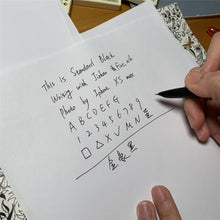 This is Standard Black
Writing with Fine nib
Photo by Iphone XS max
A B C D E F G
1 2 3 4 5 6 7 8 9
□ △ X √ M N
金豪墨